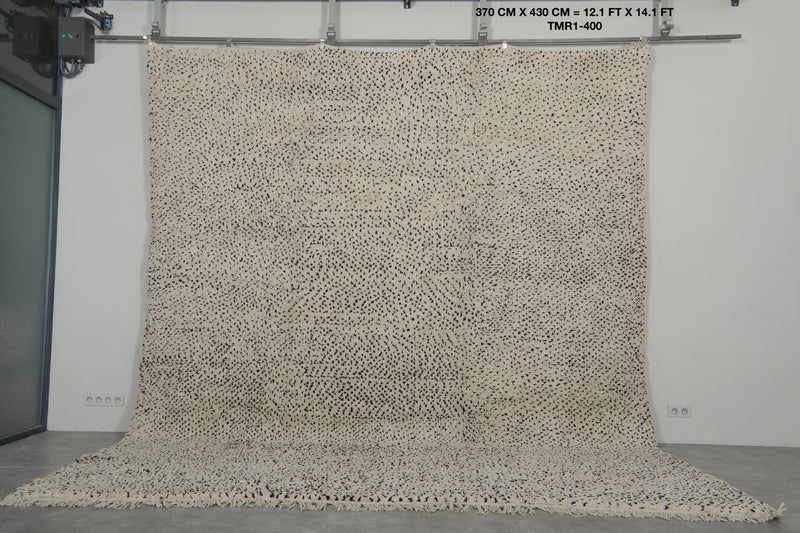 370 CM X 430 CM = 12.1 FT X 14.1 FT
TMR1-400